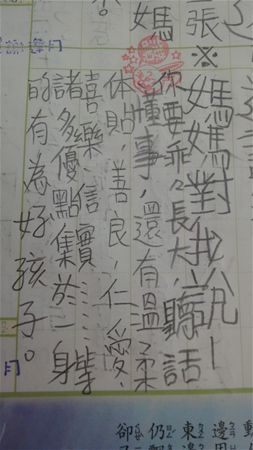 張※媽媽對我說—
媽
你要乖々長大,聽話
懂事,還有溫柔
体貼,善良,仁愛,
喜樂、信實……等
諸多優點集於一身
的有為好孩子。
月
月
動
邊用
東
仍
卻